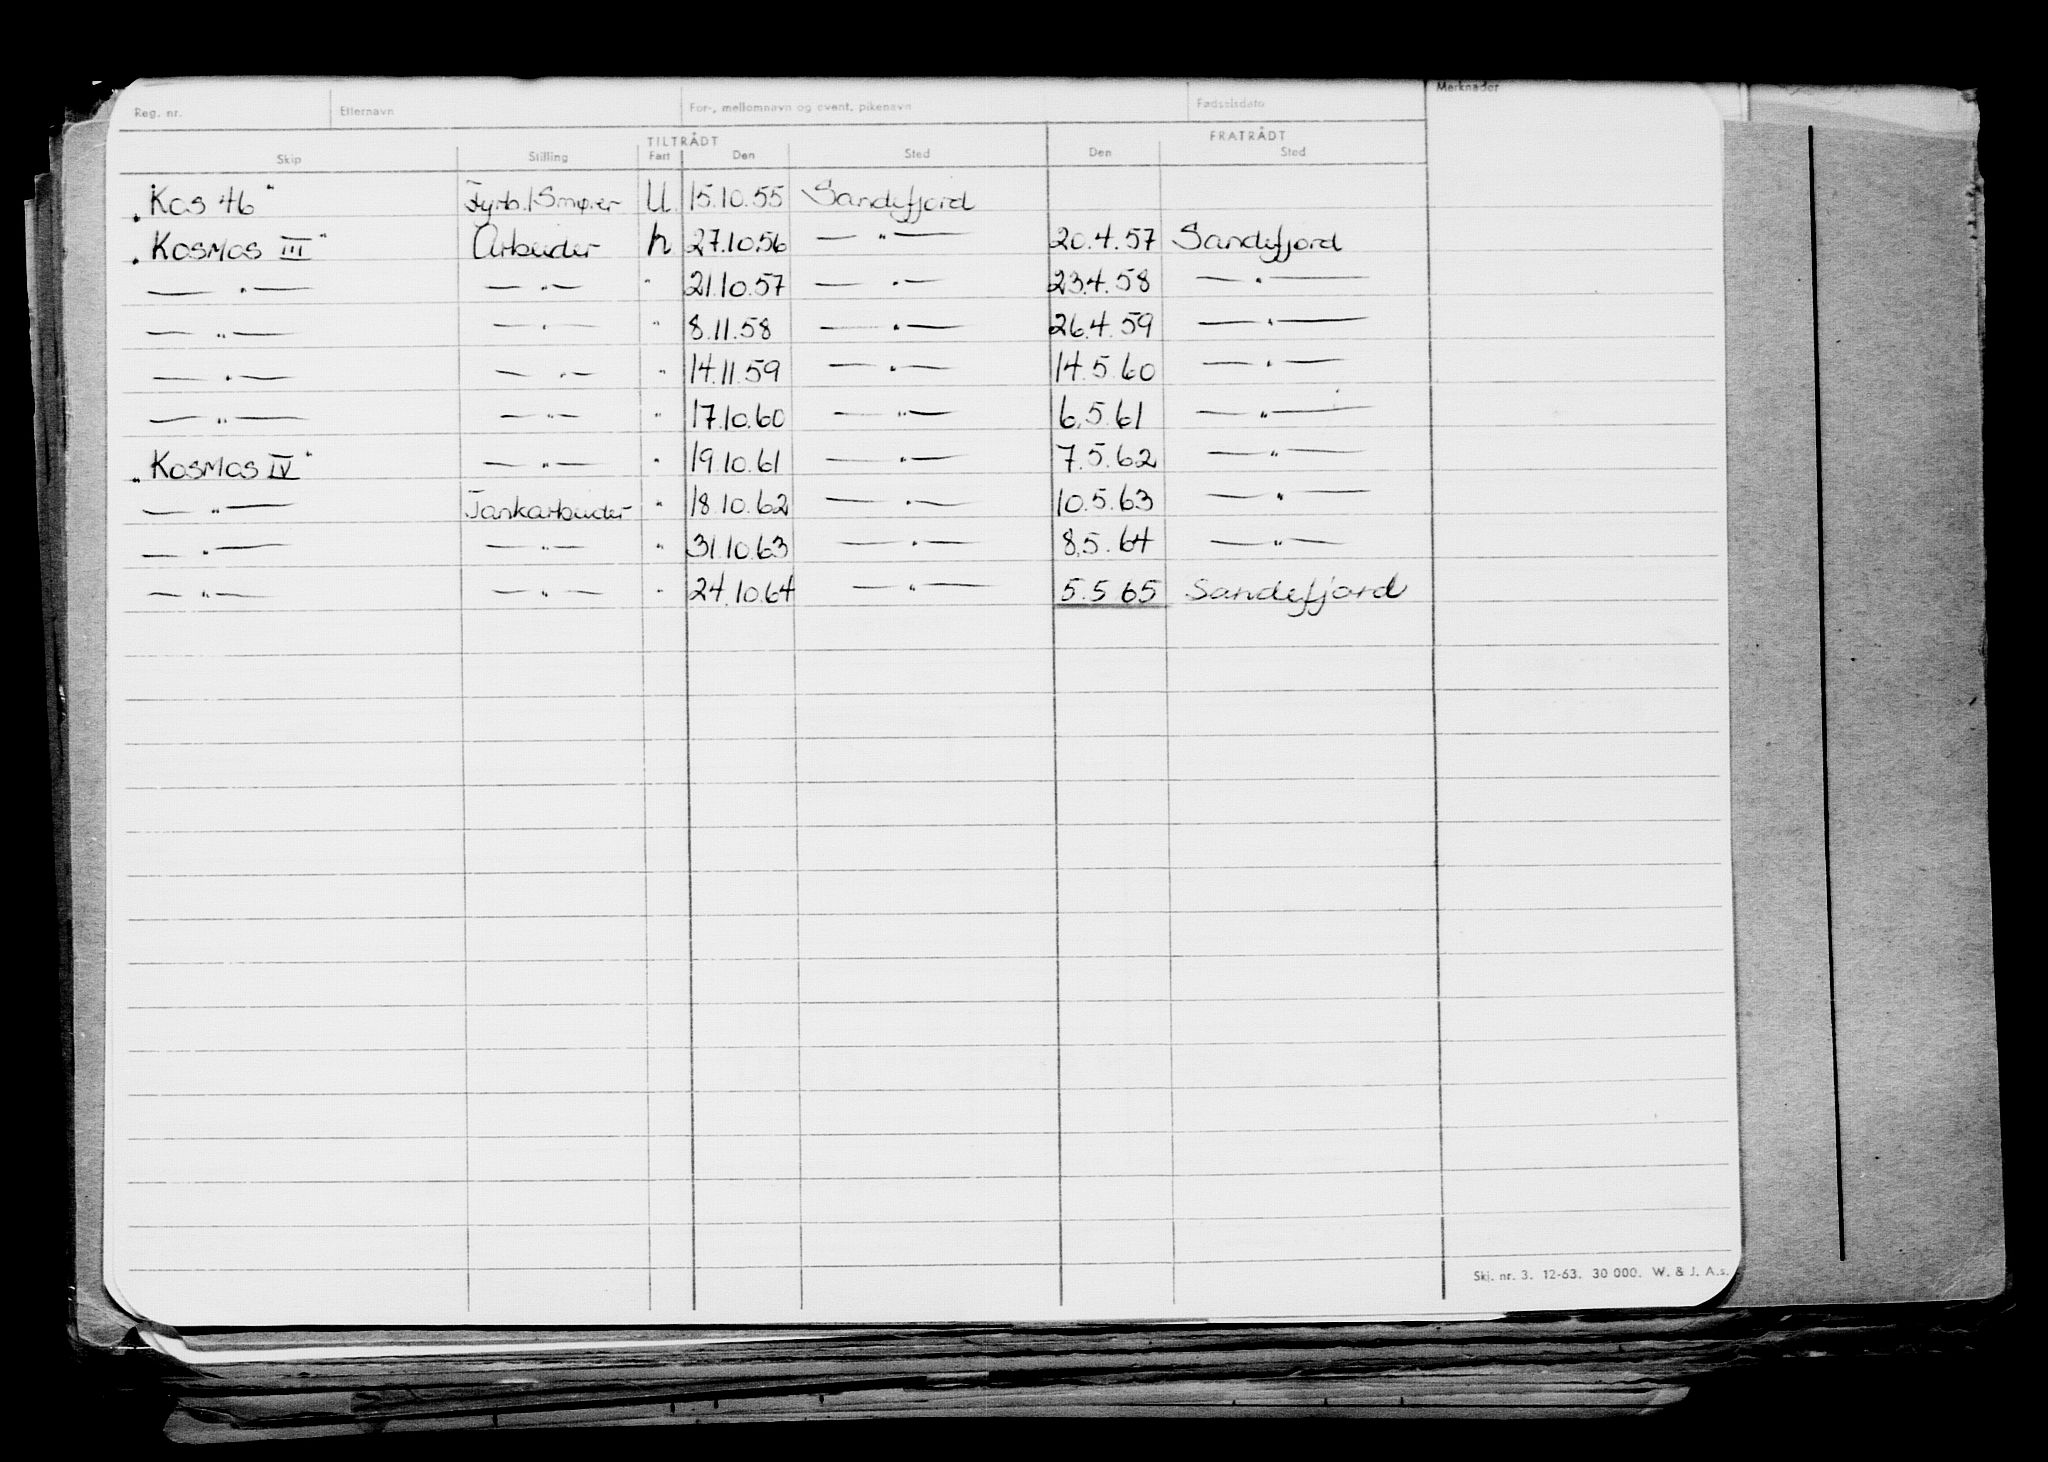 Reg. nr. Etternavn For-, mellomnavn og event. pikenavn Fødselsdato Merknader
TILTRÅDT FRATRÅDT
Skip Stilling Fart Den Sted Den Sted
„Kos 46" Fyrb./Smører U 15.10.55 Sandefjord
„Kosmos III" Arbeider h 27.10.56 — " — 20.4.57 Sandefjord
— " — — " — " 21.10.57 — " — 23.4.58 — " —
— " — — " — " 8.11.58 — " — 26.4.59 — " —
— " — — " — " 14.11.59 — " — 14.5.60 — " —
— " — — " — " 17.10.60 — " — 6.5.61 — " —
„Kosmos IV" — " — " 19.10.61 — " — 7.5.62 — " —
— " — Tankarbeider " 18.10.62 — " — 10.5.63 — " —
— " — — " — " 31.10.63 — " — 8.5.64 — " —
— " — — " — " 24.10.64 — " — 5.5.65 Sandefjord
Skj. nr. 3. 12-63. 30 000. W. & J. A.s.